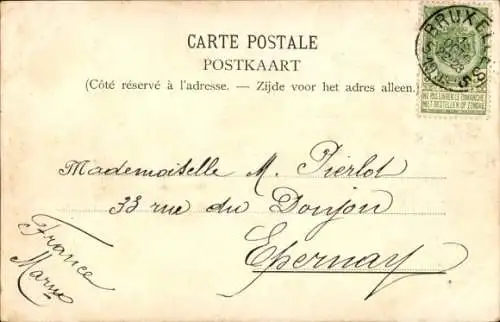 CARTE POSTALE
POSTKAART
(Côté réservé à l'adresse. — Zijde voor het adres alleen.)
BRUXEL
NE PAS LIVRER LE DIMANCHE
NIET BESTELLEN OP ZONDAG
Mademoiselle M. Pierlot
33 rue du Donjon
Epernay
France
Marne